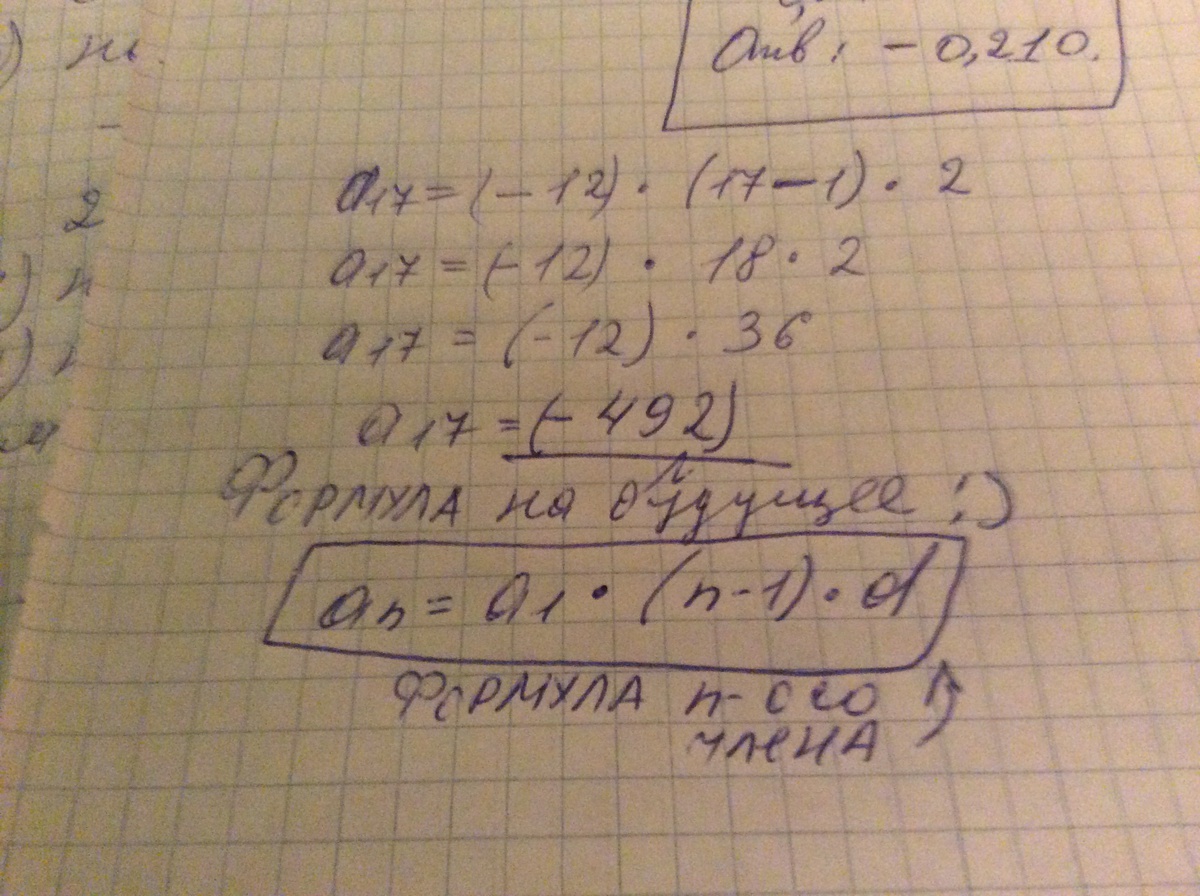 Отв: -0,210.
a17=(-12)·(17-1)·2
a17=(-12)·18·2
a17=(-12)·36
a17=(-492)
Формула на будущее :)
an=a1·(n-1)·d
Формула n-ого
члена
2